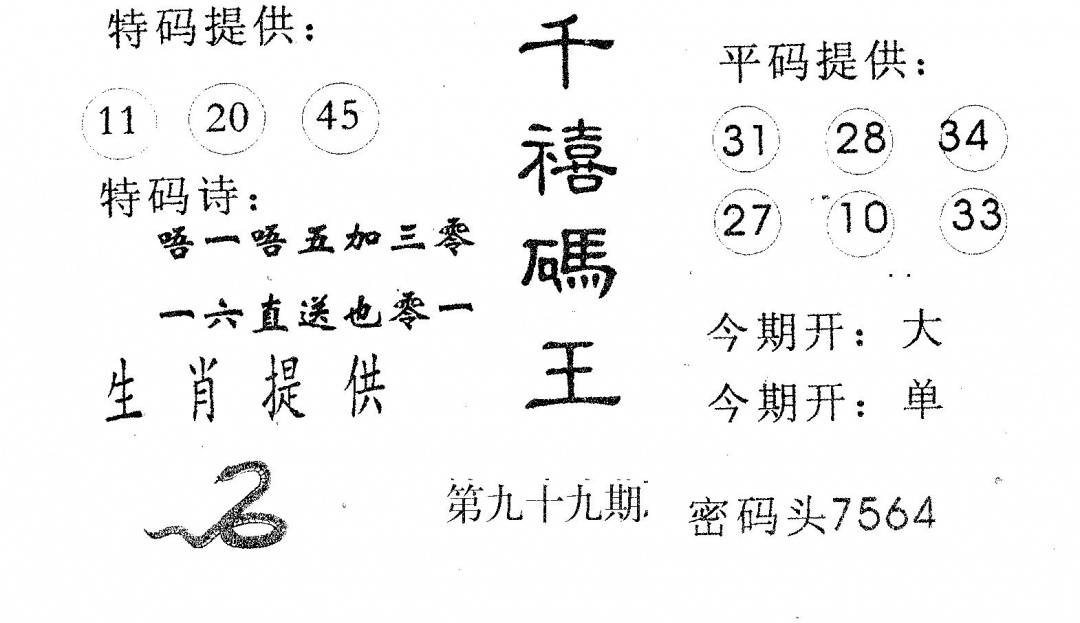 特码提供：
11 20 45
特码诗：
唔一唔五加三零
一六直送也零一
生肖提供
千禧碼王
平码提供：
31 28 34
27 10 33
今期开：大
今期开：单
第九十九期
密码头7564